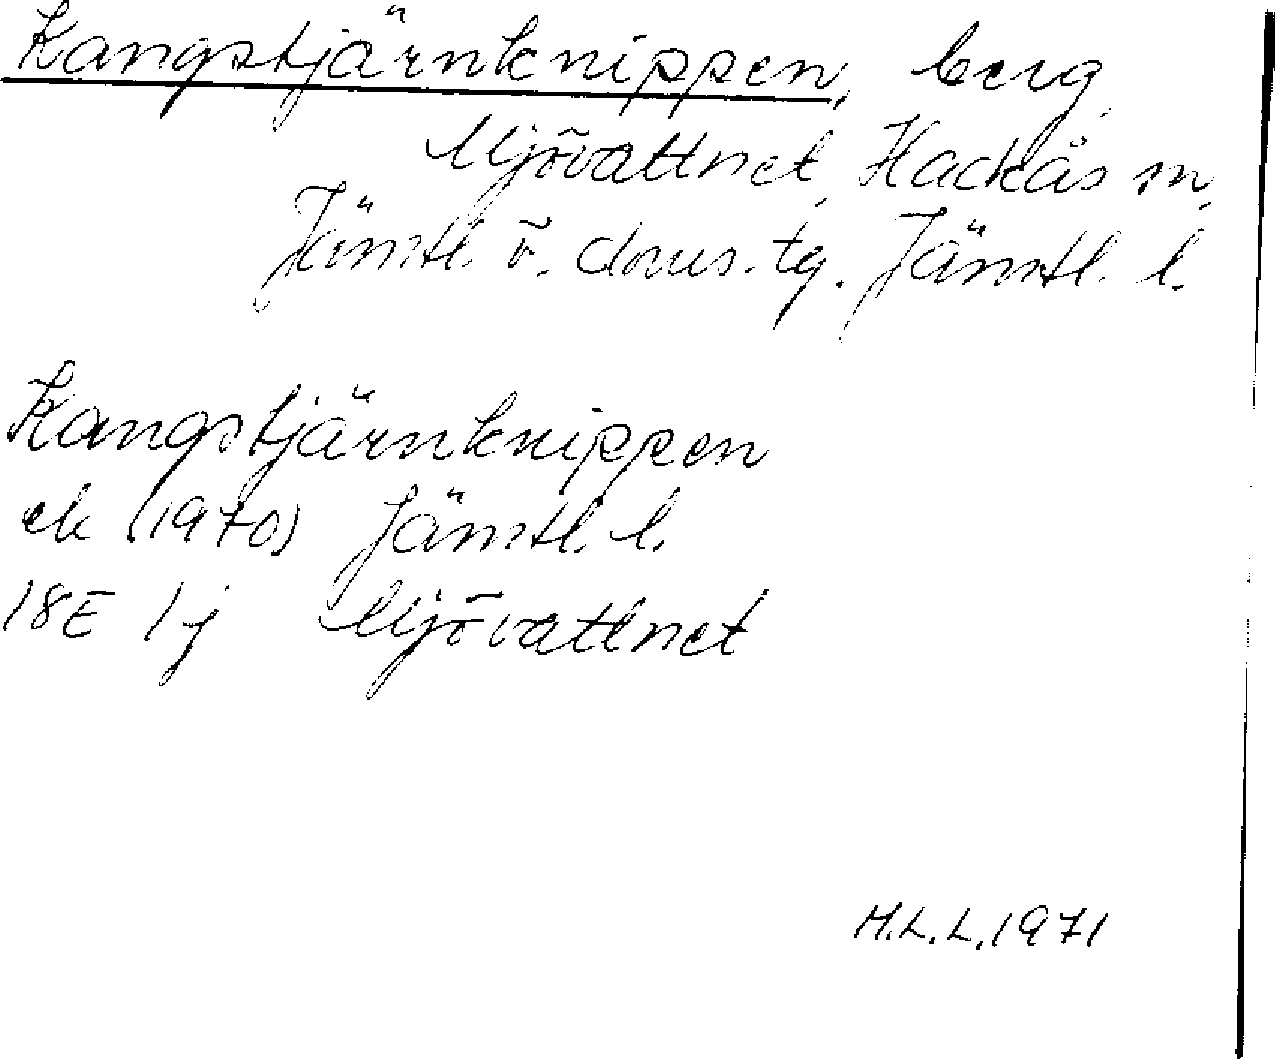 Kangstjärnknippen, berg,
Mjövattnet, Hackås sn,
Jämtl. ö. doms. tg. Jämtl. l.
Kangstjärnknippen
ek (1970) Jämtl. l.
18E 1j Mjövattnet
H.L.L. 1971